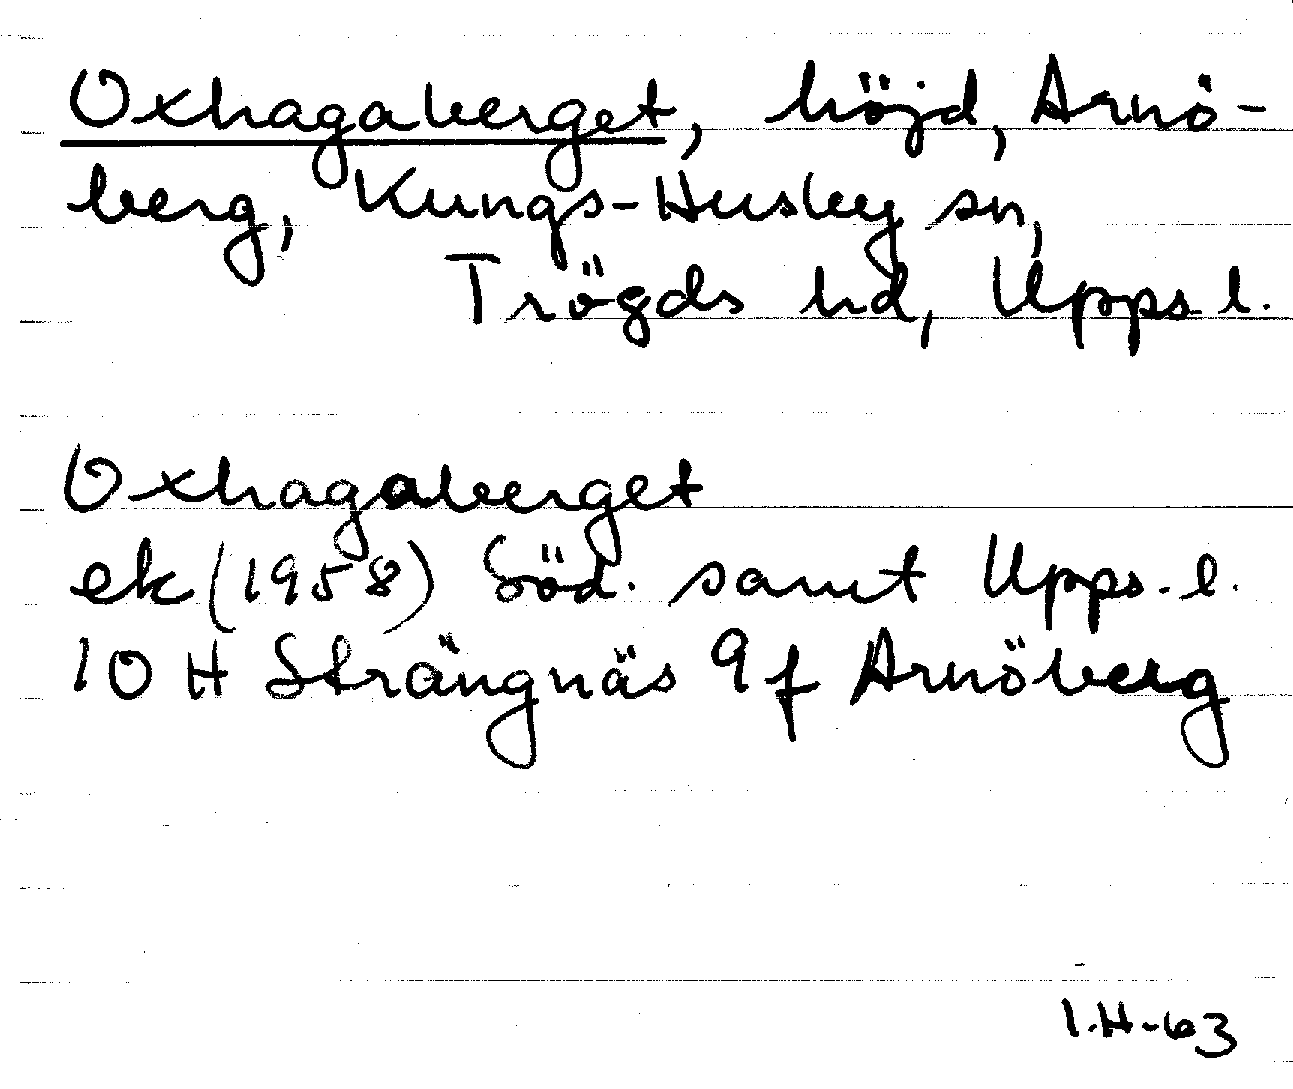 Oxhagaberget, höjd, Arnö-
berg, Kungs-Husby sn,
Trögds hd, Upps. l.
Oxhagaberget
ek (1958) Söd. samt Upps. l.
10 H Strängnäs 9 f Arnöberg
I.H-63